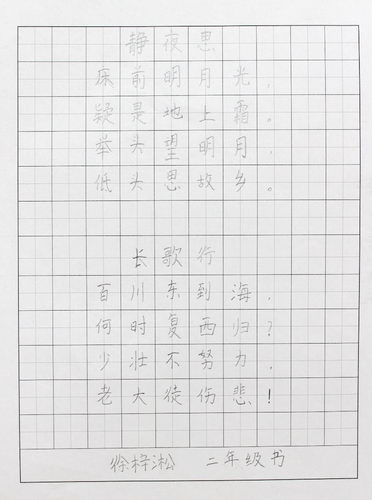 静夜思
床前明月光,
疑是地上霜。
举头望明月,
低头思故乡。
长歌行
百川东到海,
何时复西归?
少壮不努力,
老大徒伤悲!
徐梓淞 二年级书